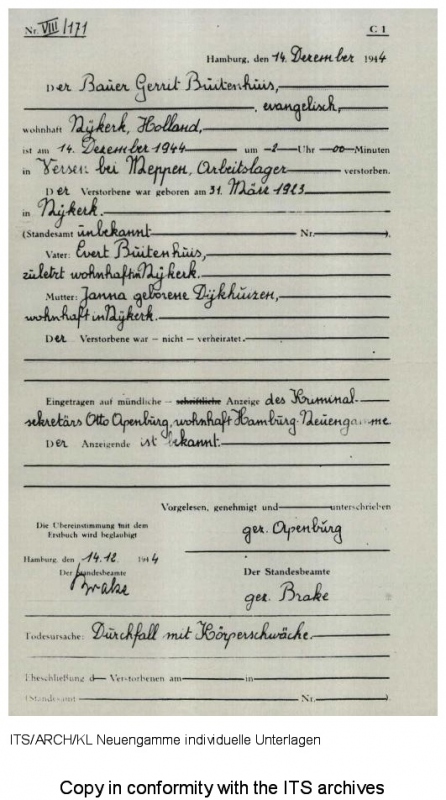 Nr. VIII/171 C 1
Hamburg, den 14. Dezember 1944
Der Bauer Gerrit Buitenhuis,
evangelisch,
wohnhaft Nijkerk, Holland,
ist am 14. Dezember 1944 um -2- Uhr -00- Minuten
in Versen bei Meppen, Arbeitslager verstorben.
Der Verstorbene war geboren am 31. März 1923
in Nijkerk.
(Standesamt unbekannt Nr. ).
Vater: Evert Buitenhuis,
zuletzt wohnhaft in Nijkerk.
Mutter: Janna geborene Dijkhuizen,
wohnhaft in Nijkerk.
Der Verstorbene war — nicht — verheiratet.
Eingetragen auf mündliche — schriftliche Anzeige des Kriminal-
sekretärs Otto Apenburg, wohnhaft Hamburg-Neuengamme
Der Anzeigende ist bekannt.
Vorgelesen, genehmigt und unterschrieben
Die Übereinstimmung mit dem
Erstbuch wird beglaubigt
gez. Apenburg
Hamburg, den 14.12. 1944
Der Standesbeamte
Brake
Der Standesbeamte
gez. Brake
Todesursache: Durchfall mit Körperschwäche.
Eheschließung d— Verstorbenen am in
(Standesamt Nr. ).
ITS/ARCH/KL Neuengamme individuelle Unterlagen
Copy in conformity with the ITS archives